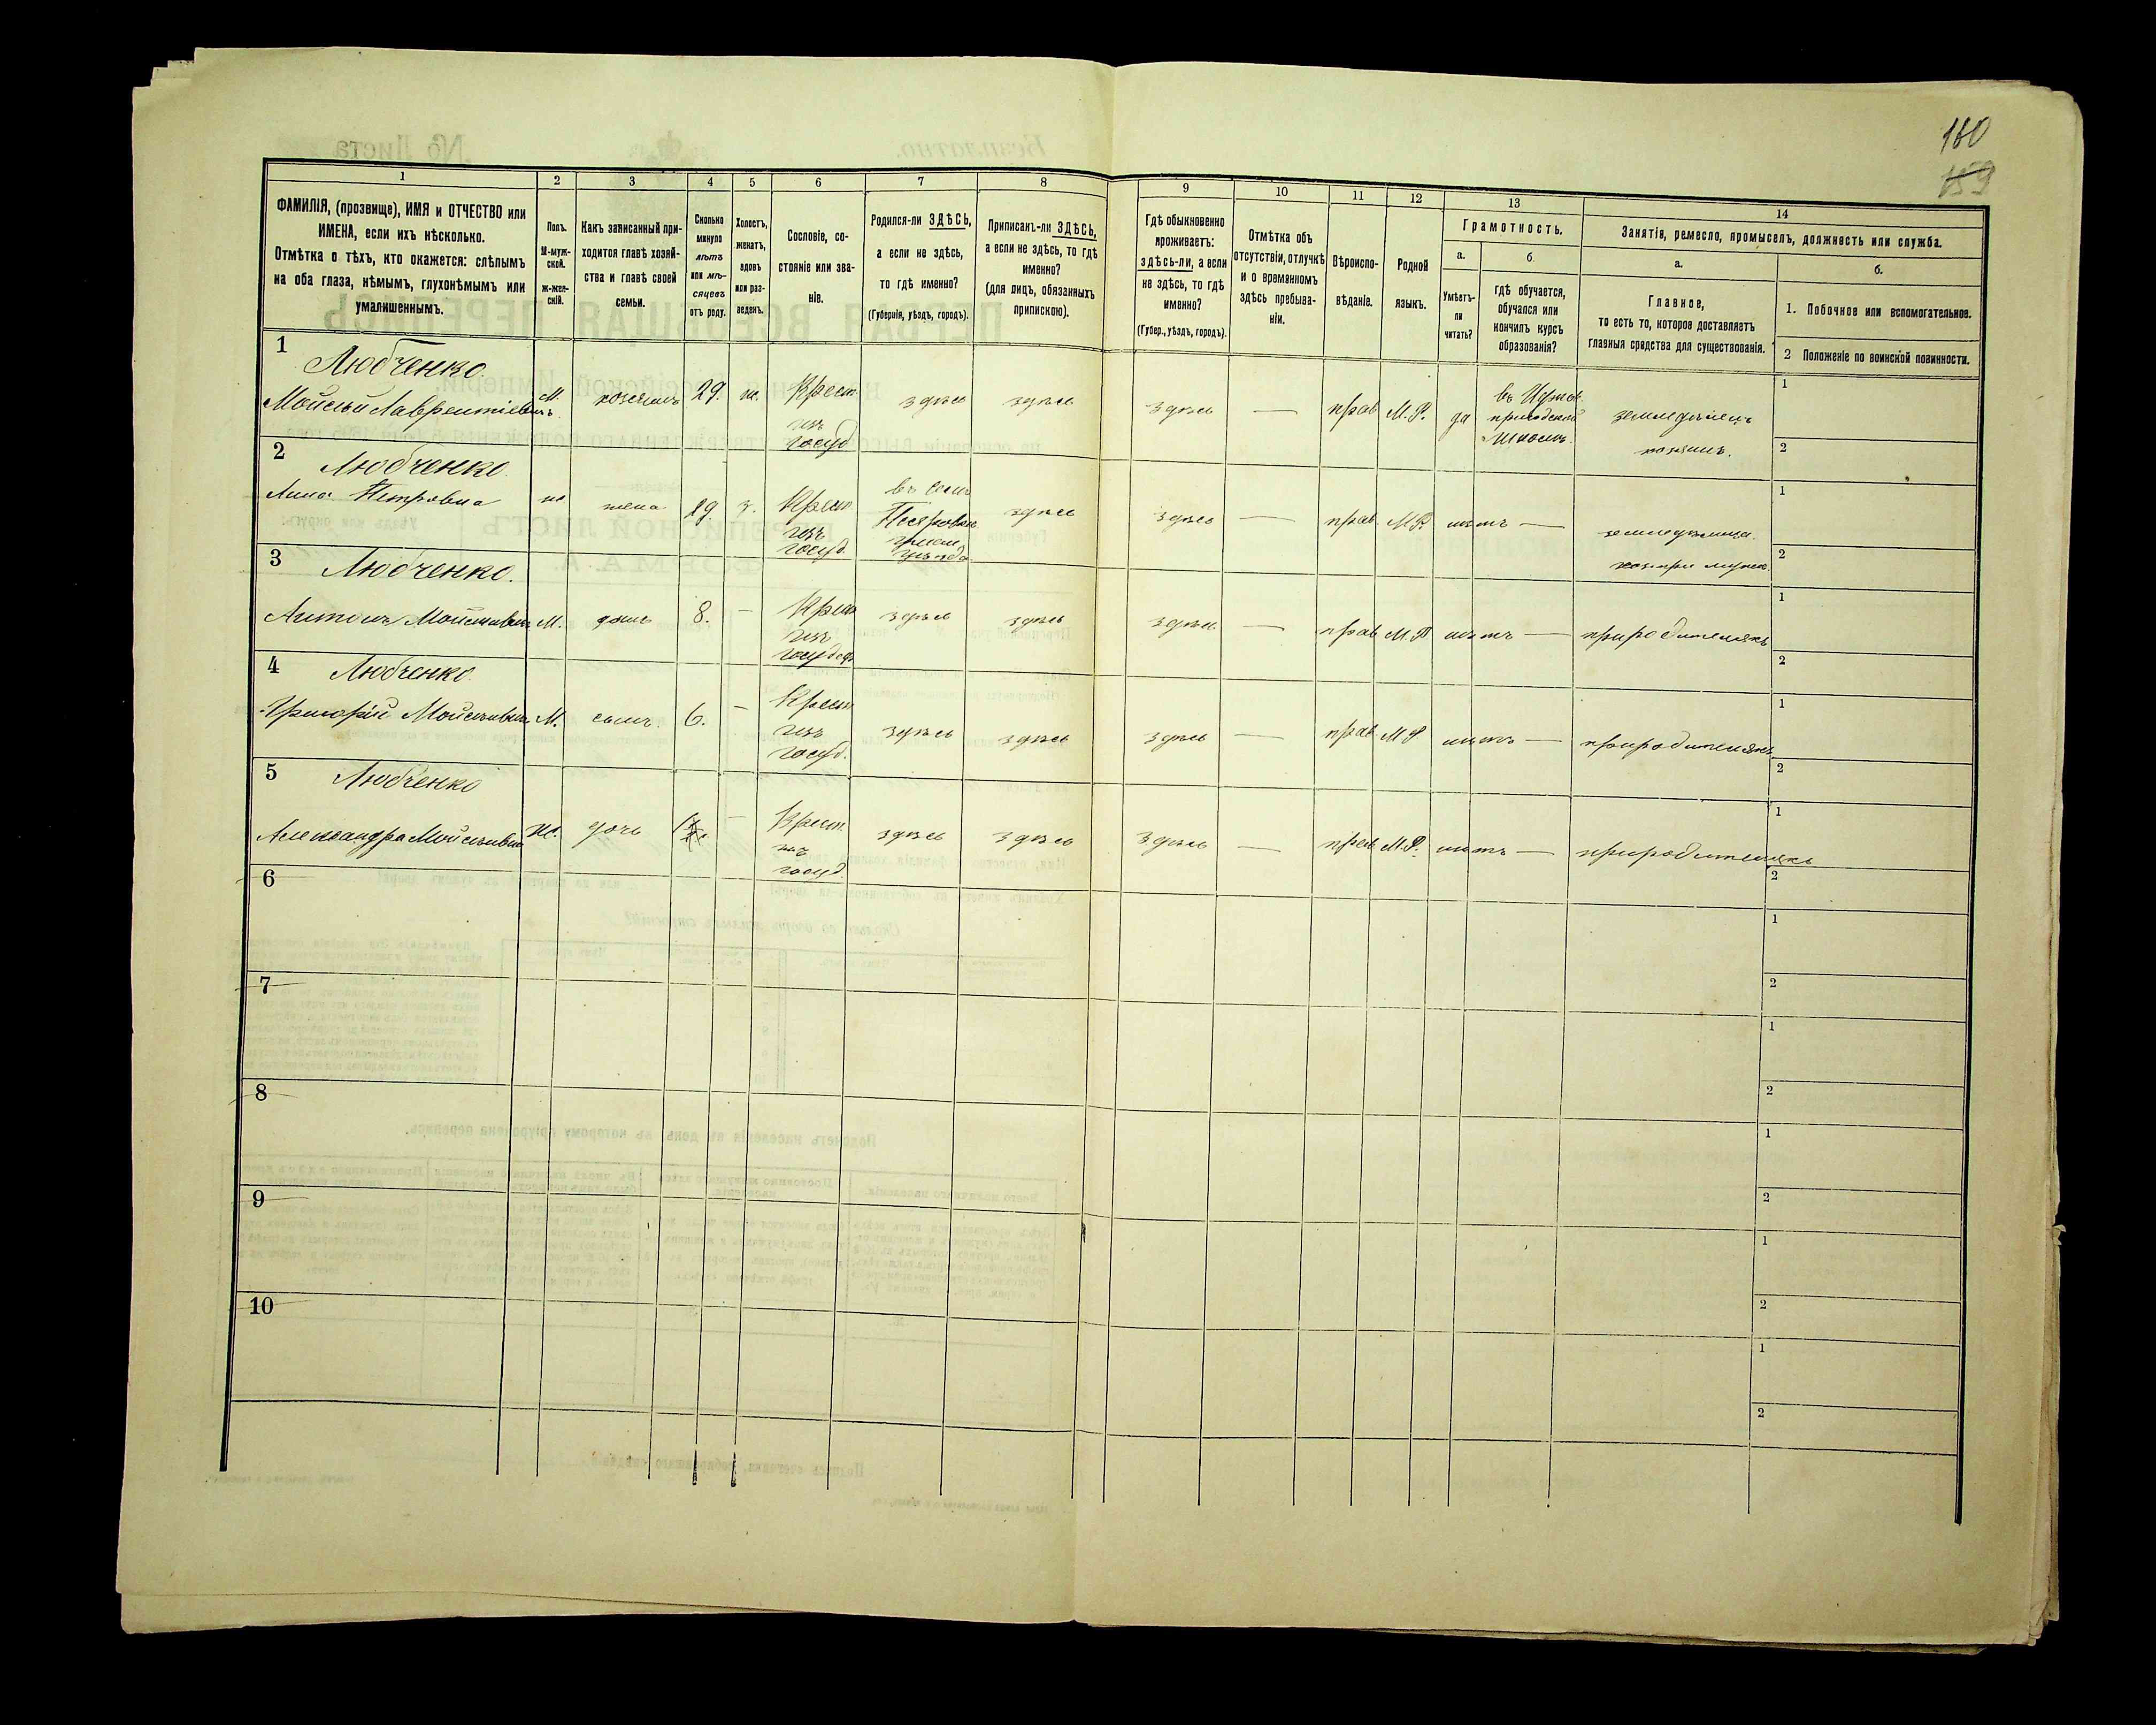 160
159
1
2
3
4
5
6
7
8
9
10
11
12
13
14
ФАМИЛІЯ, (прозвище), ИМЯ и ОТЧЕСТВО или
ИМЕНА, если ихъ нѣсколько.
Отмѣтка о тѣхъ, кто окажется: слѣпымъ
на оба глаза, нѣмымъ, глухонѣмымъ или
умалишеннымъ.
Полъ.
М-муж-
ской.
Ж-жен-
скій.
Какъ записанный при-
ходится главѣ хозяй-
ства и главѣ своей
семьи.
Сколько
минуло
лѣтъ
или мѣ-
сяцевъ
отъ роду.
Холостъ,
женатъ,
вдовъ
или раз-
веденъ.
Сословіе, со-
стояніе или зва-
ніе.
Родился-ли ЗДѢСЬ,
а если не здѣсь,
то гдѣ именно?
(Губернія, уѣздъ, городъ).
Приписанъ-ли ЗДѢСЬ,
а если не здѣсь, то гдѣ
именно?
(для лицъ, обязанныхъ
припискою).
Гдѣ обыкновенно
проживаетъ:
здѣсь-ли, а если
не здѣсь, то гдѣ
именно?
(Губер., уѣздъ, городъ).
Отмѣтка объ
отсутствіи, отлучкѣ
и о временномъ
здѣсь пребыва-
ніи.
Вѣроиспо-
вѣданіе.
Родной
языкъ.
Грамотность.
а.
Умѣетъ-
ли
читать?
б.
гдѣ обучается,
обучался или
кончилъ курсъ
образованія?
Занятія, ремесло, промыселъ, должность или служба.
а.
Главное,
то есть то, которое доставляетъ
главныя средства для существованія.
б.
1. Побочное или вспомогательное.
2 Положеніе по воинской повинности.
1
Любченко
Мойсей Лаврентіевичъ
М.
хозяинъ
29.
ж.
Крест.
изъ
госуд
здѣсь
здѣсь
здѣсь
—
прав
М.Р.
да
въ
приходской
школѣ.
земледѣлецъ
хозяинъ.
1
2
2
Любченко
Анна Петровна
ж
жена
29
з.
Крест
изъ
госуд.
въ селѣ
уѣзда
здѣсь
здѣсь
—
прав
М.Р.
нѣтъ —
земледѣлица.
хоз. при мужѣ.
1
2
3
Любченко.
Антонъ Мойсѣевичъ
М.
8.
—
Крест
изъ
госуд
здѣсь
здѣсь
здѣсь
—
прав
М.Р
нѣтъ —
природителяхъ
1
2
4
Любченко
Григорій Мойсѣевичъ
М.
сынъ.
6.
—
Крест
изъ
госуд.
здѣсь
здѣсь
здѣсь
—
прав
М Р
нѣтъ —
природителяхъ
1
2
5
Любченко
Александра Мойсѣевна
Ж.
дочь
—
Крест.
изъ
госуд.
здѣсь
здѣсь
здѣсь
—
прав
М.Р.
нѣтъ —
природителяхъ
1
2
6
1
2
7
1
2
8
1
2
9
1
2
10
1
2